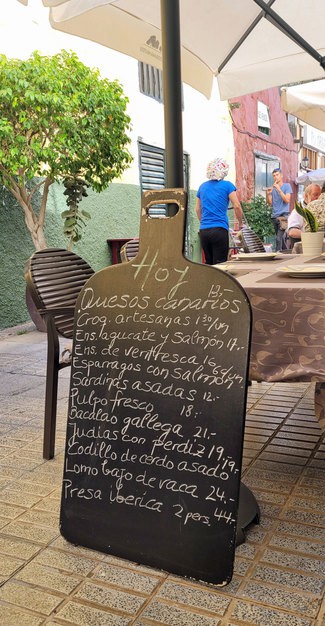 Hoy
Quesos canarios 12,-
Croq. artesanas 1'30/un
Ens. aguacate y Salmón 17.-
Ens. de ventresca 16,-
Esparragos con salmón
Sardinas asadas 12.-
Pulpo fresco 18.-
Bacalao gallega 21.-
Judias con perdiz 19,-
Codillo de cerdo asado 19.-
Lomo bajo de vaca 24,-
Presa iberica 2 pers. 44.-